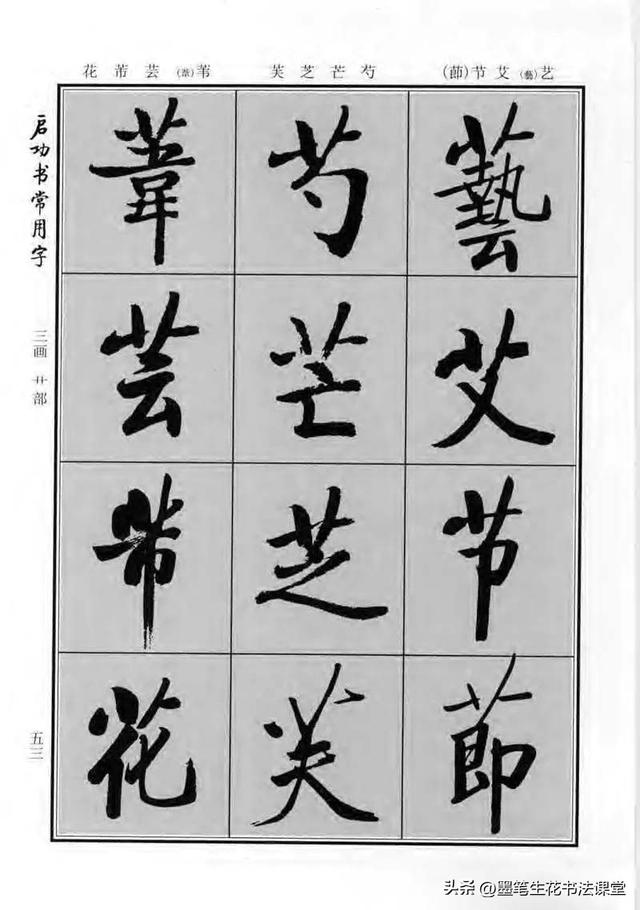 艺(藝)艾节(莭)
芍芒芝芙
苇(葦)芸芾花
藝艾节莭
芍芒芝芙
葦芸芾花
启功书常用字
三画 艹部
五三
头条 @墨笔生花书法课堂